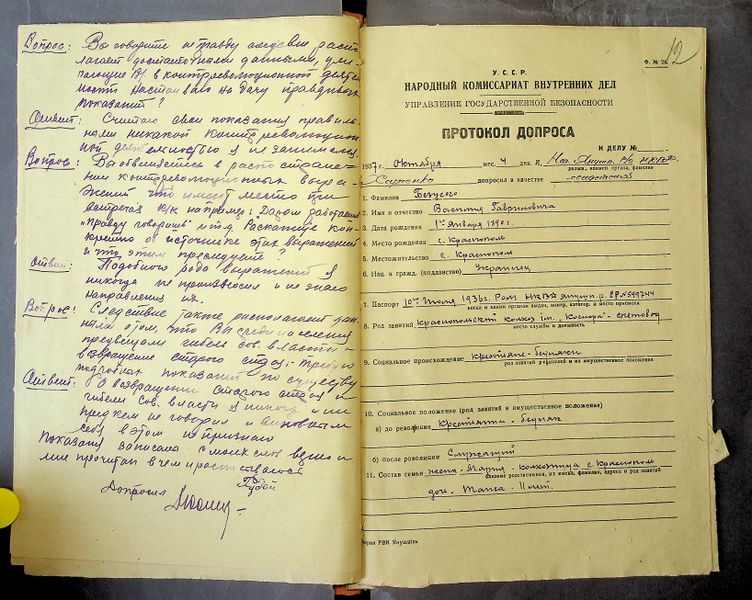 Вопрос: Вы говорите неправду следствие распо-
лагает достаточными данными, ули-
чающие Вы в контрреволюционной деятель-
ности настаиваю на дачу правдивых
показаний?
Ответ: Считаю свои показания правиль-
ными никакой контрреволюцион-
ной деятельностью я не занимался.
Вопрос: Вы обвиняетесь в распостране-
нии контрреволюционных выра-
жений что имеет место при
встречах к/к например: Даром работаеш
"правду говориш" и т.д. Расскажите кон-
кретно об источнике этих выражений
и что этим преследует?
Ответ: Подобного рода выражений я
никогда не произносил и не знаю
направления их.
Вопрос: Следствие также располагает дан-
ными о том, что Вы среди населения
предвещали гибель сов. власти и
возвращение старого строя: Требую
подробных показаний по существу
Ответ: О возвращении старого строя и
гибели сов. власти я никогда и ни
пред кем не говорил и виновным
себя в этом не признаю
Показания записаны с моих слов верно и
мне прочитан в чем и расписываюсь
Допросил
Ф. № 26
12
У. С. С. Р.
НАРОДНЫЙ КОМИССАРИАТ ВНУТРЕННИХ ДЕЛ
УПРАВЛЕНИЕ ГОСУДАРСТВЕННОЙ БЕЗОПАСНОСТИ
ПРОТОКОЛ ДОПРОСА
К ДЕЛУ №
1937 г. октября мес. 4 дня. Я, Нач. Янушп. Р/о НКВД
должн., наименов. органа, фамилия
допросил в качестве
1. Фамилия
2. Имя и отчество Василия Гавриловича
3. Дата рождения 1го января 1890 г.
4. Место рождения с. Краснопол
5. Местожительство с. Краснопол
6. Нац. и гражд. (подданство) Украинец
7. Паспорт 10го Июля 1936г. РОМ НКВД янушп. р.
когда и каким органом выдан, номер, категор. и место прописки
8. Род занятий Краснопольский колхоз им. Косиора - счетовод
место службы и должность
9. Социальное происхождение крестьяне-бедняки
род занятий родителей и их имущественное положение
10. Социальное положение (род занятий и имущественное положение)
а) до революции Крестьянин - бедняк
б) после революции Служащий
11. Состав семьи жена - Мария - колхозница с. Краснопол
близкие родственники, их имена, фамилии, адреса и род занятий
доч.
РВК Янушпіль